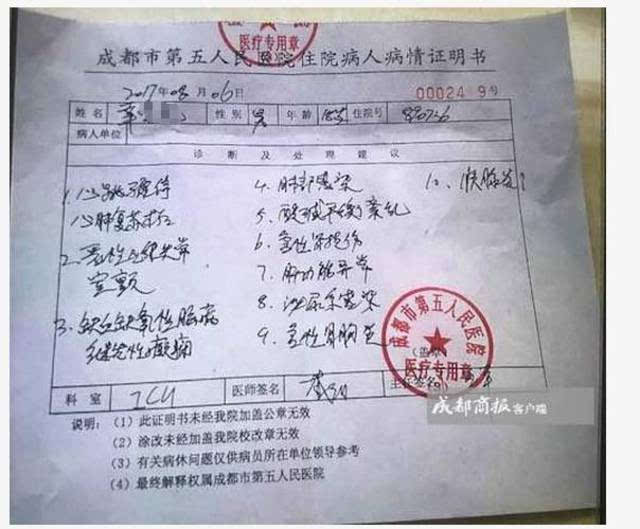 医疗专用章
成都市第五人民医院住院病人病情证明书
2017年08月06日
000024 9号
姓名 性别 男 年龄 住院号
病人单位
诊断及处理建议
1. 心跳骤停
心肺复苏术后
2. 恶性心律失常
室颤
3. 缺血缺氧性脑病
继发性癫痫
4. 肺部感染
5. 酸碱平衡紊乱
6. 急性肾损伤
7. 肝功能异常
8. 泌尿系感染
9. 急性胃肠炎
10. 胰腺炎?
成都市第五人民医院
医疗专用章
(盖章)
科室 ICU 医师签名 主任签
成都商报客户端
说明: (1) 此证明书未经我院加盖公章无效
(2) 涂改未经加盖我院校改章无效
(3) 有关病休问题仅供病员所在单位领导参考
(4) 最终解释权属成都市第五人民医院